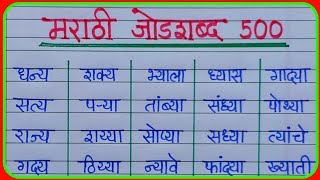 मराठी जोडशब्द 500
धन्य शक्य भ्याला ध्यास गाद्या
सत्य पऱ्या तांब्या संध्या पोथ्या
राज्य शय्या सोप्या सध्या त्यांचे
गद्य ठिय्या न्यावे फांद्या ख्याती